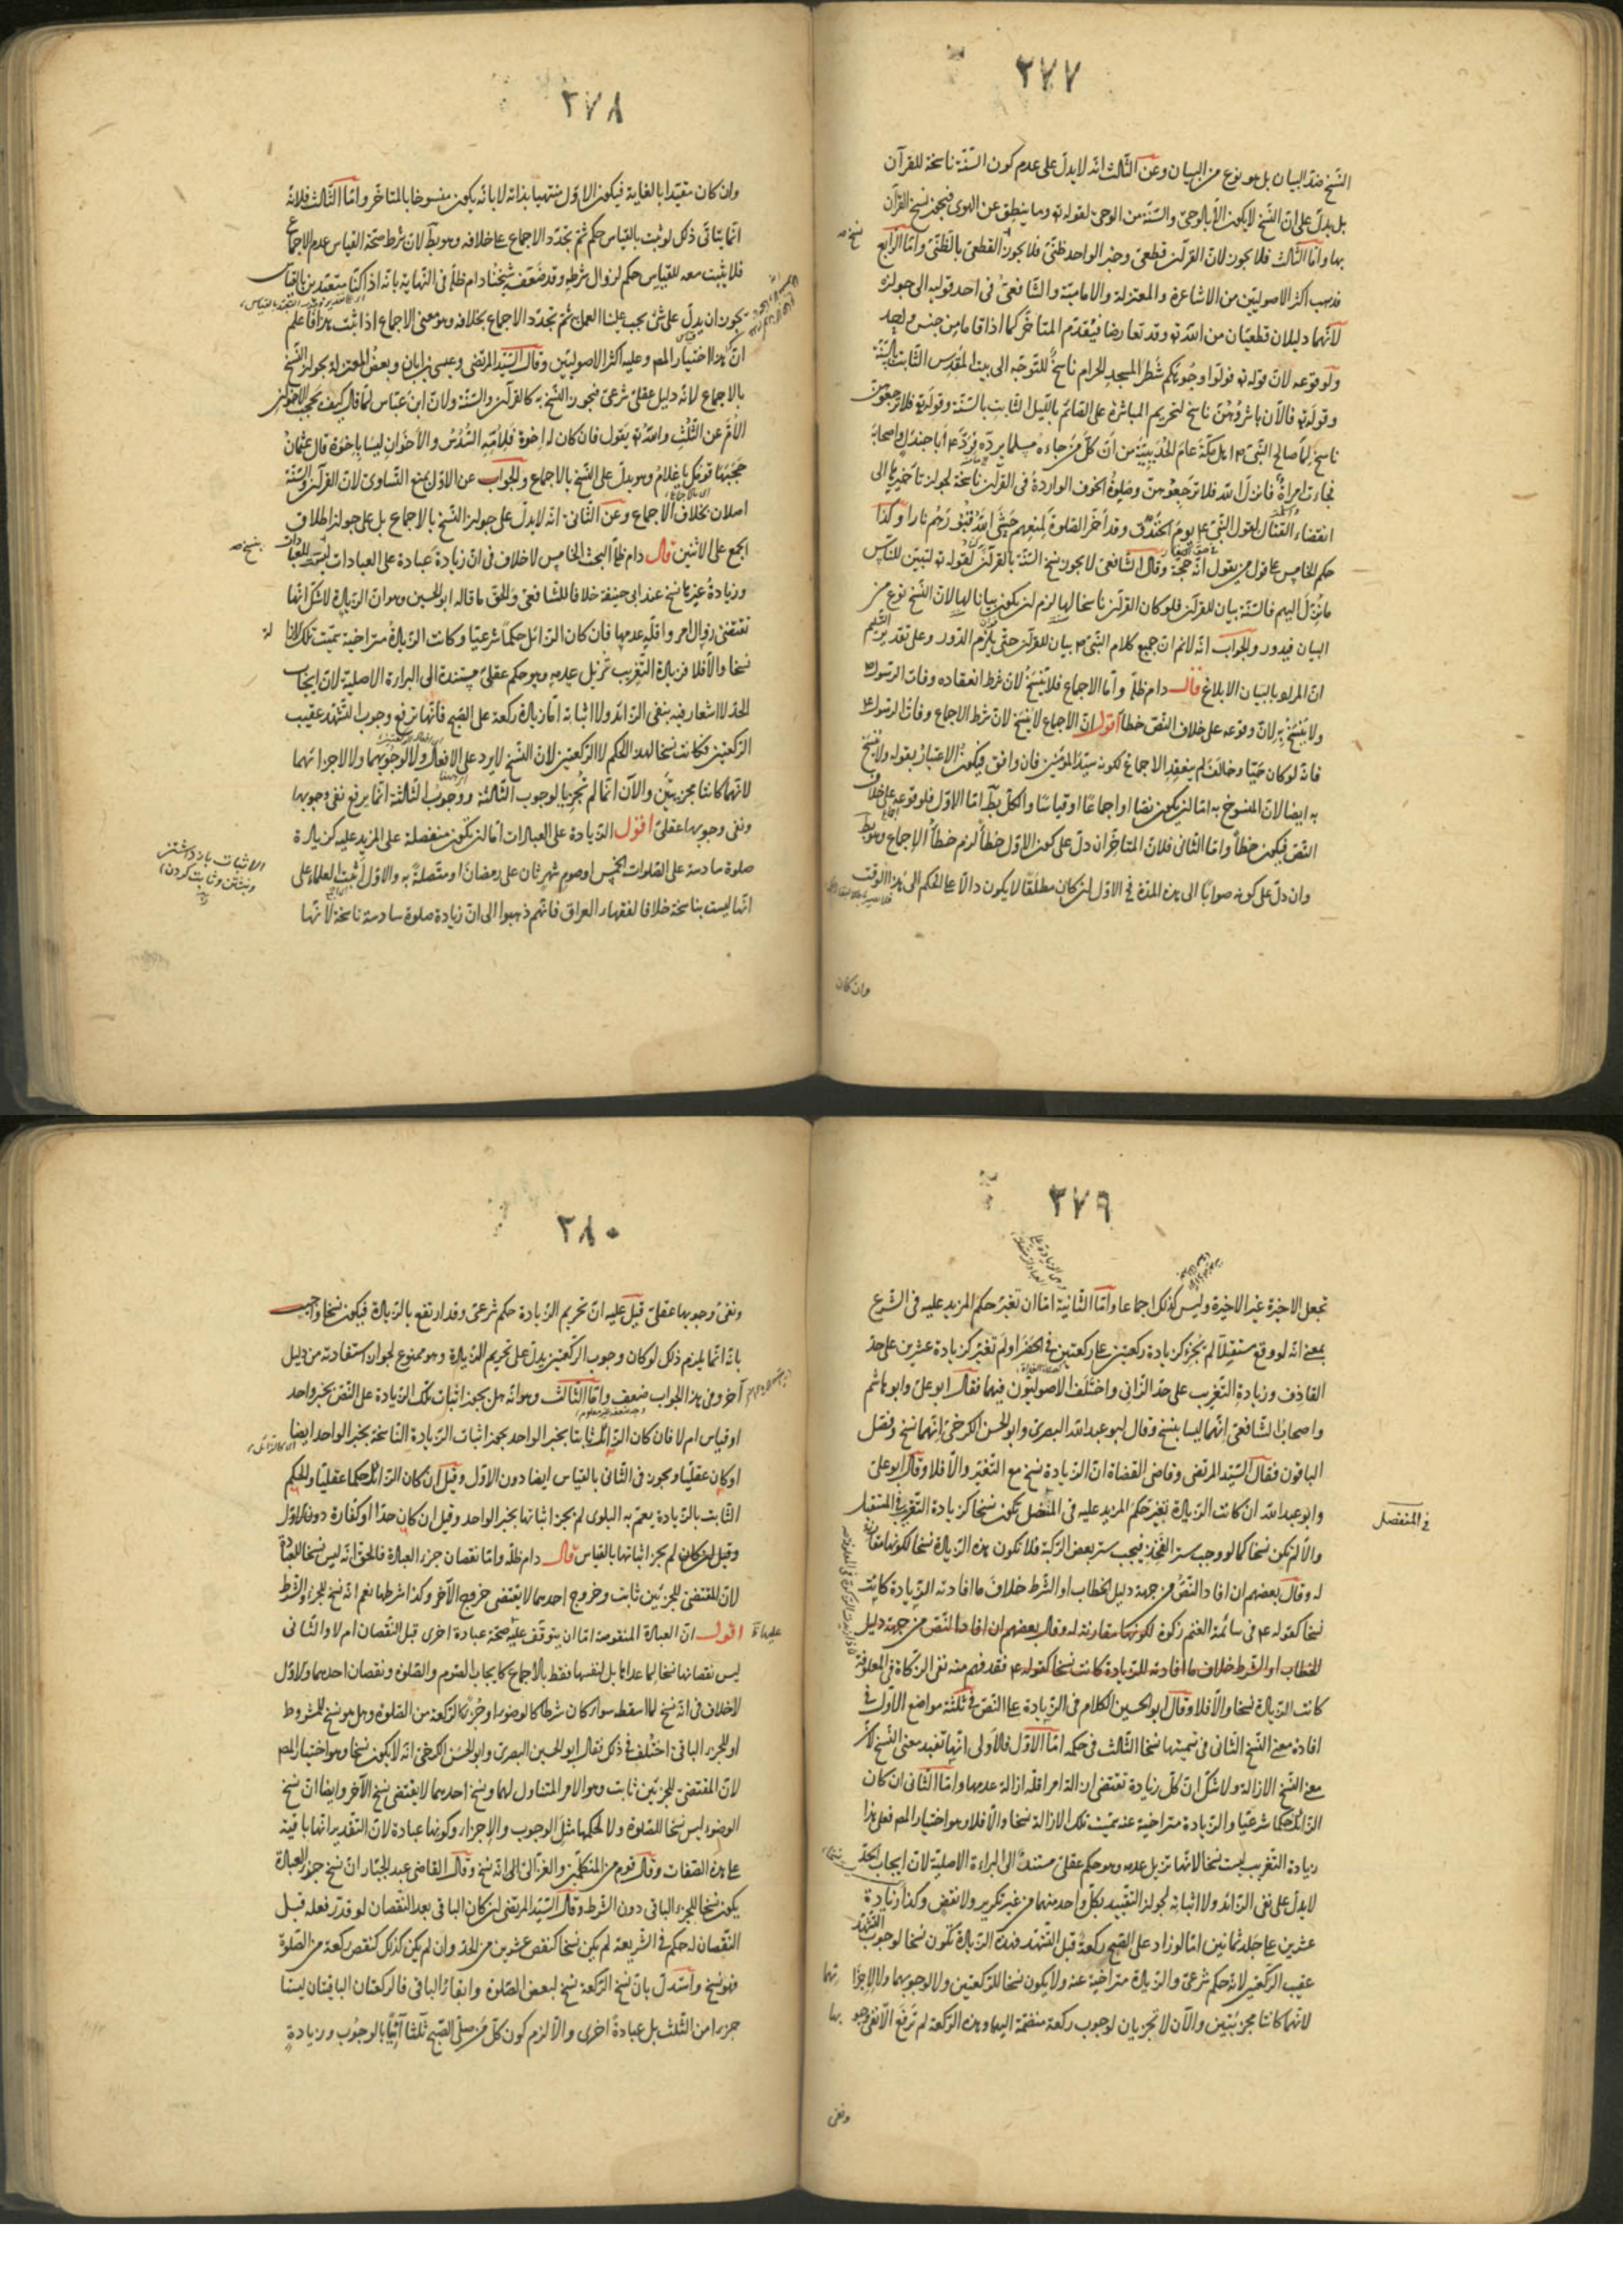 ٢٧٧
النسخ ضد البيان بل هو نوع من البيان وعن الثالث انه لا يدل على عدم كون السنة ناسخة للقرآن
بل يدل على ان النسخ لا يكون الا بالوحى والسنة من الوحى لقوله تع وما ينطق عن الهوى فيجوز نسخ القرآن
بها واما الثالث فلا يجوز لان القرآن قطعى وخبر الواحد ظنى فلا يجوز القطعى بالظنى واما الرابع
نسخ صه
فذهب اكثر الاصوليين من الاشاعرة والمعتزلة والامامية والشافعى فى احد قوليه الى جوازه
لانهما دليلان قطعيان من الله تع وقد تعارضا فيقدم المتاخر كما اذا قاما من جنس واحد
ولوقوعه لان قوله تع فولوا وجوهكم شطر المسجد الحرام ناسخ للتوجه الى بيت المقدس الثابت بالسنة
وقوله تع فالآن باشروهن ناسخ لتحريم المباشرة على القائم بالليل الثابت بالسنة وقوله تع فلا ترجعوهن
ناسخ لما صالح النبى اهل مكة عام الحديبية من ان كل من جاءه مسلما يرده فرد ابا جندل واصحابه
فجاءت امراة فانزل الله فلا ترجعوهن وصلوة الخوف الواردة فى القرآن ناسخة لجواز تاخيرها الى
انقضاء القتال لقول النبى يوم الخندق وقد اخر الصلوة لمنعهم حشى الله قبورهم نارا وكذا
حكم الخامس على قول من يقول انه حجة وقال الشافعى لا يجوز نسخ السنة بالقرآن لقوله تع لتبين للناس
ما نزل اليهم فالسنة بيان للقرآن فلو كان القرآن ناسخا لها لزم ان يكون بيانا لها لان النسخ نوع من
البيان فيدور والجواب انه لا نم ان جميع كلام النبى بيان للقرآن حتى يلزم الدور وعلى تقدير التسليم
ان المراد بالبيان الابلاغ قال دام ظله واما الاجماع فلا ينسخ لان شرط انعقاده وفات الرسول
ولا ينسخ به لان وقوعه على خلاف النص خطا اقول ان الاجماع لا ينسخ لان شرط الاجماع وفات الرسول
فانه لو كان حيا وخالف لم ينعقد الاجماع لكونه سيد المؤمنين فان وافق فيكون الاعتبار بقوله ولا ينسخ
به ايضا لان المنسوخ به اما ان يكون نصا او اجماعا او قياسا والكل بط اما الاول فلوقوعه على خلاف
النص فيكون خطأ واما الثانى فلان المتاخر ان دل على كون الاول خطأ لزم خطأ الاجماع وهو بط
وان دل على كونه صوابا الى هذه المدة فى الاول ان كان مطلقا لا يكون دالا على الحكم الى هذا الوقت
وان كان
٢٧٨
وان كان مقيدا بالغاية فيكون الاول منتهيا بذاته لا بانه يكون منسوخا بالمتاخر واما الثالث فلانه
انما يتاتى ذلك لو ثبت بالقياس حكم ثم تجدد الاجماع على خلافه وهو بط لان شرط صحة القياس عدم الاجماع
فلا يثبت معه للقياس حكم لزوال شرطه وقد ضعفه شيخنا دام ظله فى النهاية بانه اذا كنا متعبدين بالقياس
يجوز ان يدل على شئ يجب علينا العمل ثم تجدد الاجماع بخلافه وهو معنى الاجماع اذا ثبت هذا فاعلم
ان هذا اختيار المص وعليه اكثر الاصوليين وقال السيد المرتضى وعيسى بن ابان وبعض المعتزلة بجواز النسخ
بالاجماع لانه دليل عقلى شرعى فيجوز النسخ به كالقرآن والسنة ولان ابن عباس لما قال كيف يحجب الاخوان
الام عن الثلث والله تع يقول فان كان له اخوة فلامه السدس والاخوان ليسا باخوة قال عثمان
حجبها قومك يا غلام وهو يدل على النسخ بالاجماع والجواب عن الاول بمنع التساوى لان القرآن والسنة
اصلان بخلاف الاجماع وعن الثانى انه لا يدل على جواز النسخ بالاجماع بل على جواز اطلاق
الجمع على الاثنين قال دام ظله البحث الخامس لا خلاف فى ان زيادة عبادة على العبادات ليست للعبادات
بنسخ صه
وزيادة غيرها نسخ عند ابى حنيفة خلافا للشافعى والحق ما قاله ابو الحسين وهو ان الزيادة لا شك انها
تقتضى زوال امر واقله عدمها فان كان الزائل حكما شرعيا وكانت الزيادة متراخية سميت تلك الازا
لة
نسخا والا فلا فزيادة التغريب تزيل عدمه وهو حكم عقلى مستندة الى البراءة الاصلية لان ايجاب
الحد لا اشعار فيه بنفى الزائد ولا اثباته اما زيادة ركعة على الصبح فانها ترفع وجوب التشهد عقيب
الركعتين فكانت نسخا لهذا الحكم لا الركعتين لان النسخ لا يرد على الافعال ولا لوجوبهما ولا لاجزائهما
لانهما كانتا مجزيتين والآن انما لم تجزيا لوجوب الثالثة ووجوب الثالثة انما يرفع نفى وجوبها
ونفى وجوبها عقلى اقول الزيادة على العبادات اما ان تكون منفصلة على المزيد عليه كزيادة
صلوة سادسة على الصلوات الخمس او صوم شهر ثان على رمضان او متصلة به والاول اثبت العلماء على
انها ليست بناسخة خلافا لفقهاء العراق فانهم ذهبوا الى ان زيادة صلوة سادسة ناسخة لانها
الاثبات باز داشتن
ونبشتن وثابت كردن
٢٧٩
تجعل الاخيرة غير الاخيرة وليس كذلك اجماعا واما الثانية اما ان تغير حكم المزيد عليه فى الشرع
بمعنى انه لو وقع مستقبلا لم يجزء كزيادة ركعتين على ركعتين فى الحضر او لم تغير كزيادة عشرين على حد
القاذف وزيادة التغريب على حد الزانى واختلف الاصوليون فيهما فقال ابو على وابو هاشم
واصحاب الشافعى انهما ليسا بنسخ وقال ابو عبد الله البصرى وابو الحسن الكرخى انهما نسخ وفصل
الباقون فقال السيد المرتضى وقاضى القضاة ان الزيادة نسخ مع التغير والا فلا وقال ابو على
وابو عبد الله ان كانت الزيادة تغير حكم المزيد عليه فى المتصل تكون نسخا كزيادة التغريب فى المستقبل
فى المنفصل
والا لم تكن نسخا كما لو وجب ستر الفخذ فيجب ستر بعض الركبة فلا تكون هذه الزيادة نسخا لكونها مقارنة
له وقال بعضهم ان افاد النص من جهة دليل الخطاب او الشرط خلاف ما افادته الزيادة كانت
نسخا كقوله فى سائمة الغنم زكوة لكونها مقارنة له وقال بعضهم ان افاد النص من جهة دليل
الخطاب او الشرط خلاف ما افادته للزيادة كانت نسخا كقوله فقد فهم منه نفى الزكاة فى المعلوفة
كانت الزيادة نسخا والا فلا وقال ابو الحسين الكلام فى الزيادة على النص فى ثلثة مواضع الاول فى
افادة معنى النسخ الثانى فى تسميتها نسخا الثالث فى حكمه اما الاول فالاولى انها تفيد معنى النسخ لان
معنى النسخ الازالة ولا شك ان كل زيادة تقتضى ازالة امر اقله ازالة عدمها واما الثانى ان كان
الزائل حكما شرعيا والزيادة متراخية عنه سميت تلك الازالة نسخا والا فلا وهو اختيار المص فعلى هذا
زيادة التغريب ليست نسخا لانها تزيل عدمه وهو حكم عقلى مستند الى البراءة الاصلية لان ايجاب الحد
لا يدل على نفى الزائد ولا اثباته لجواز التقييد بكل واحد منهما من غير تكرير ولا نقض وكذا زيادة
عشرين على جلد ثمانين اما لو زاد على الصبح ركعة قبل التشهد فهذه الزيادة تكون نسخا لوجوب التشهد
عقيب الركعتين لانه حكم شرعى والزيادة متراخية عنه ولا يكون نسخا للركعتين ولا لوجوبهما ولا لاجزا
ئهما
لانهما كانتا مجزيتين والآن لا تجزيان لوجوب ركعة منضمة اليهما وهذه الركعة لم ترفع الا نفى وجو
بها
ونفى
٢٨٠
ونفى وجوبها عقلى قيل عليه ان تحريم الزيادة حكم شرعى وقد ارتفع بالزيادة فيكون نسخا واجيب
بانه انما يلزم ذلك لو كان وجوب الركعتين يدل على تحريم الزيادة وهو ممنوع لجواز استفادته من دليل
آخر وفى هذا الجواب ضعف واما الثالث وهو انه هل يجوز اثبات تلك الزيادة على النص بخبر واحد
او قياس ام لا فان كان الزائل ثابتا بخبر الواحد يجوز اثبات الزيادة الناسخة بخبر الواحد ايضا
او كان عقليا ويجوز فى الثانى بالقياس ايضا دون الاول وقيل ان كان الزائل حكما عقليا والحكم
الثابت بالزيادة يعم به البلوى لم يجز اثباتها بخبر الواحد وقيل ان كان حدا او كفارة دون الاول
وقيل ان كان لم يجز اثباتها بالقياس قال دام ظله واما نقصان جزء العبادة فالحق انه ليس نسخا للعبادة
لان المقتضى للجزئين ثابت وخروج احدهما لا يقتضى خروج الآخر وكذا شرطها نعم انه نسخ للجزء والشرط
اقول ان العبادة المنقوصة اما ان يتوقف عليه صحة عبادة اخرى قبل النقصان ام لا والثانى
عليها
ليس نقصانها نسخا لما عداها بل لنفسها فقط بالاجماع كايجاب الصوم والصلوة ونقصان احدهما والاول
لا خلاف فى انه نسخ لما اسقط سواء كان شرطا كالوضوء او جزءا كالركعة من الصلوة وهل هو نسخ للمشروط
او للجزء الباقى اختلف فى ذلك فقال ابو الحسين البصرى وابو الحسن الكرخى انه لا يكون نسخا وهو اختيار المص
لان المقتضى للجزئين ثابت وهو الامر المتناول لهما ونسخ احدهما لا يقتضى نسخ الآخر وايضا ان نسخ
الوضوء ليس نسخا للصلوة ولا لحكمها مثل الوجوب والاجزاء وكونها عبادة لان التقدير انها باقية
على هذه الصفات وقال قوم من المتكلمين والغزالى الى انه نسخ وقال القاضى عبد الجبار ان نسخ جزء العبادة
يكون نسخا للجزء الباقى دون الشرط وقال السيد المرتضى ان كان الباقى بعد النقصان لو قدر فعله قبل
النقصان له حكم فى الشريعة لم يكن نسخا كنقص عشرين من الحد وان لم يكن كذلك كنقص ركعة من الصلوة
فهو نسخ واستدل بان نسخ الركعة نسخ لبعض الصلوة وابقاء الباقى فالركعتان الباقيتان ليستا
جزءا من الثلث بل عبادة اخرى والا لزم كون كل من صلى الصبح ثلثا آتيا بالوجوب وزيادة